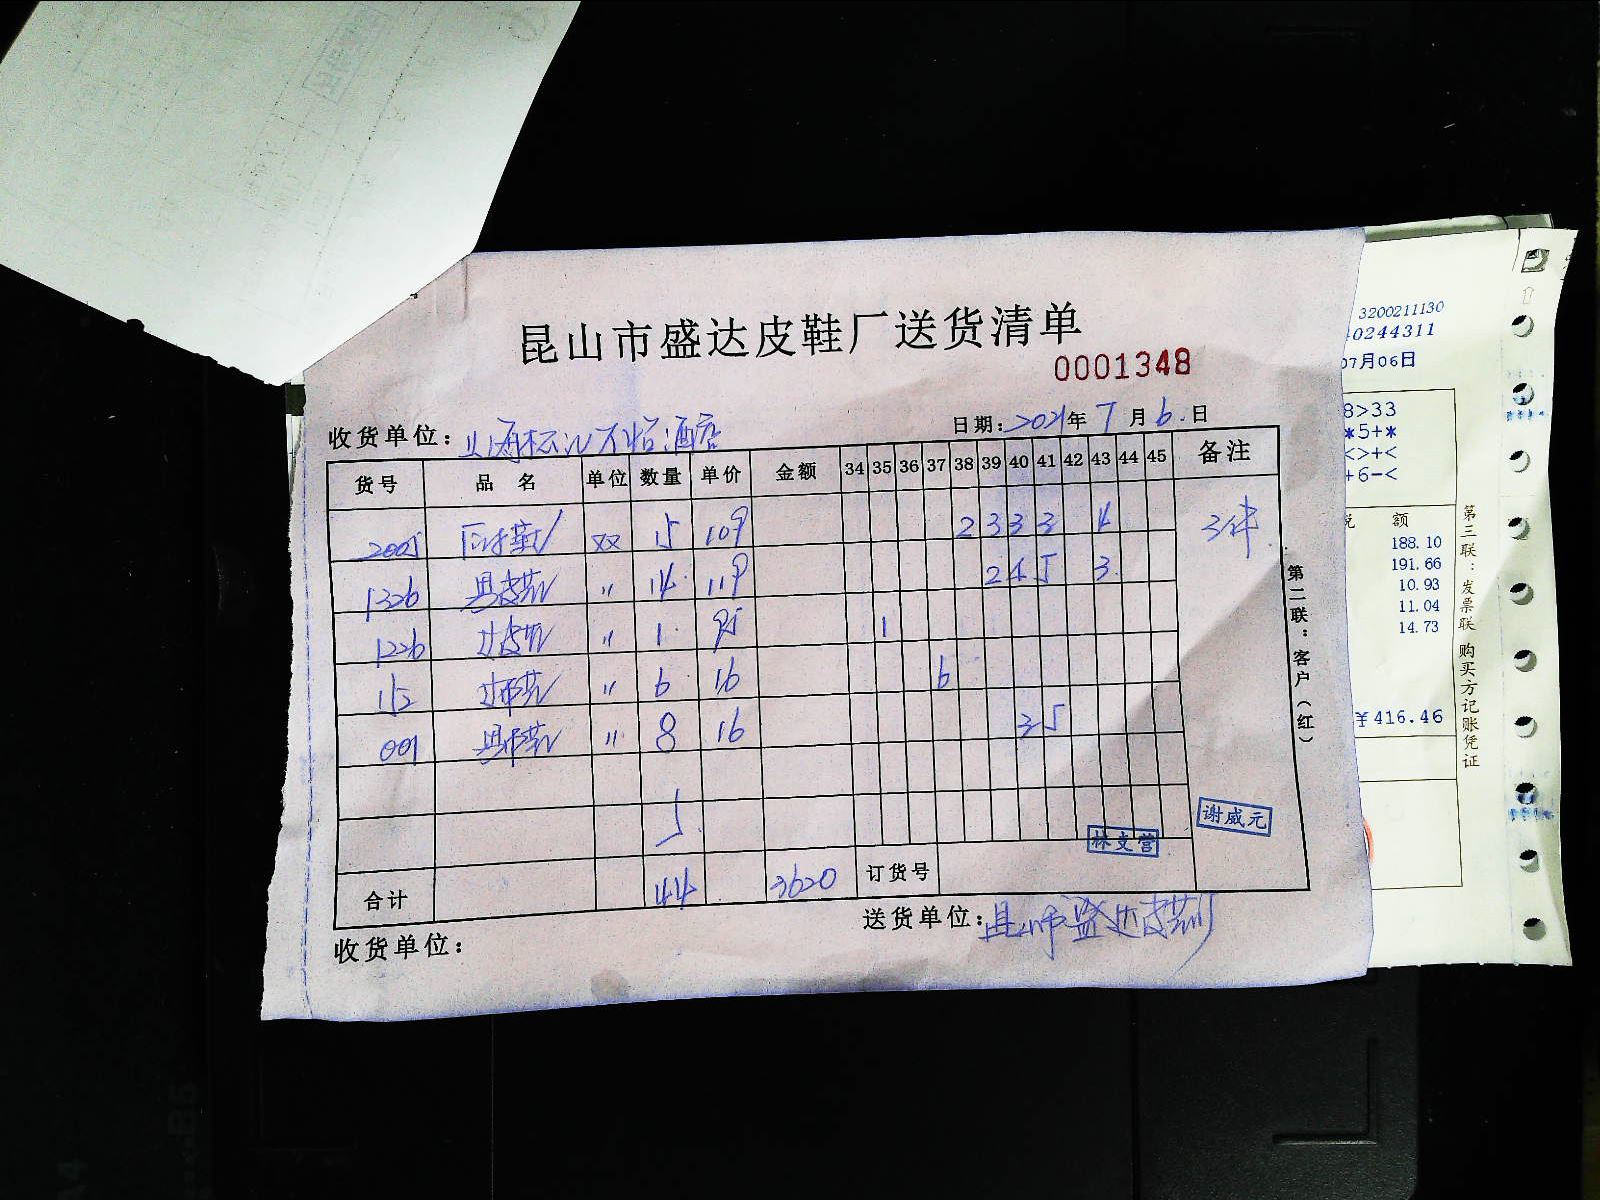 昆山市盛达皮鞋厂送货清单
0001348
收货单位: 酒店
日期: 2021年 7月 6.日
货号 品名 单位 数量 单价 金额 34 35 36 37 38 39 40 41 42 43 44 45 备注
2005 双 15 109 2 3 3 3 4 3件
1326 男皮鞋 " 14 119 2 4 5 3
1226 女皮鞋 " 1 95 1
112 女布鞋 " 6 16 6
001 男布鞋 " 8 16 3 5
5
谢威元
林文营
合计 44 3620 订货号
收货单位:
送货单位: 昆山市盛达皮鞋厂
第二联:客户(红)
3200211130
0244311
07月06日
8>33
*5+*
<>+<
+6-<
额
188.10
191.66
10.93
11.04
14.73
¥416.46
第三联:发票联 购买方记账凭证